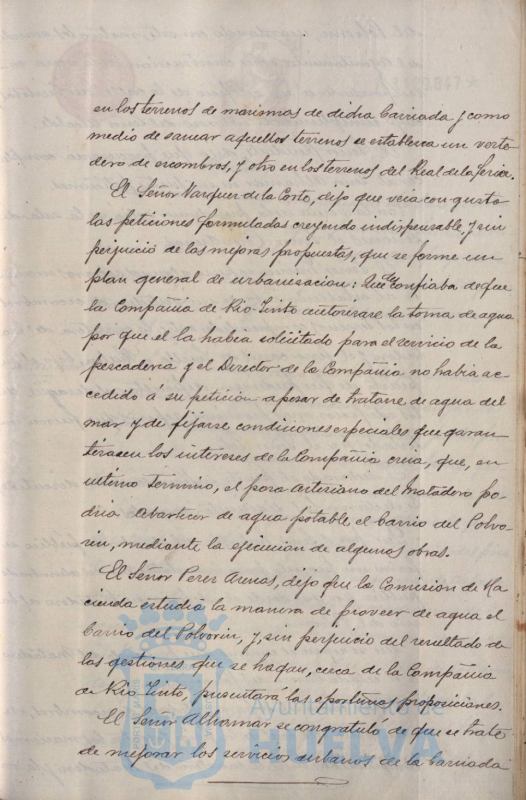 en los terrenos de marismas de dicha barriada y como
medio de sanear aquellos terrenos se establezca un verte
dero de escombros, y otro en los terrenos del Real de la Feria.
El Señor Vazquez de la Corte, dijo que veia con gusto
las peticiones formuladas creyendo indispensable, y sin
perjuicio de las mejoras propuestas, que se forme un
plan general de urbanizacion: Que confiaba de que
la Compañia de Rio-Tinto autorizase la toma de agua
por que el la habia solicitado para el servicio de la
pescaderia y el Director de la Compañia no habia ac-
cedido á su petición apesar de tratarse de agua del
mar y de fijarse condiciones especiales que garan
tizasen los intereses de la Compañia creia, que, en
ultimo termino, el pozo artesiano del Matadero po-
dria abastecer de agua potable el barrio del Polvo-
rin, mediante la ejecucion de algunas obras.
El Señor Perez Arenas, dijo que la Comision de Ha
cienda estudia la manera de proveer de agua el
barrio del Polvorin, y, sin perjuicio del resultado de
las gestiones que se hagan, cerca de la Compañia
de Rio Tinto, presentará las oportunas proposiciones.
El Señor Alhomar se congratuló de que se trate
de mejorar los servicios urbanos de la barriada
Ayuntamiento de
HUELVA